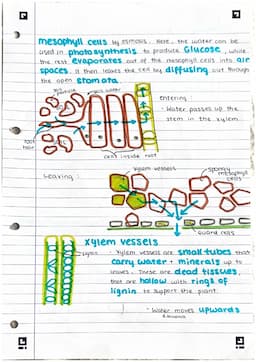 mesophyll cells by osmosis. Here, the water can be
used in photosynthesis to produce Glucose, while
the rest evaporates out of the mesophyll cells into air
spaces. It then leaves the cell by diffusing out through
the open stomata.
entering:
· Water passes up the
stem in the xylem.
root
hair
cells inside root
Leaving:
xylem vessels
spongy
mesophyll
cells
guard cells
xylem vessels
lignin
· Xylem vessels are small tubes that
carry water + minerals up to
leaves. These are dead tissues,
that are hollow with rings of
lignin to support the plant.
· Water moves upwards